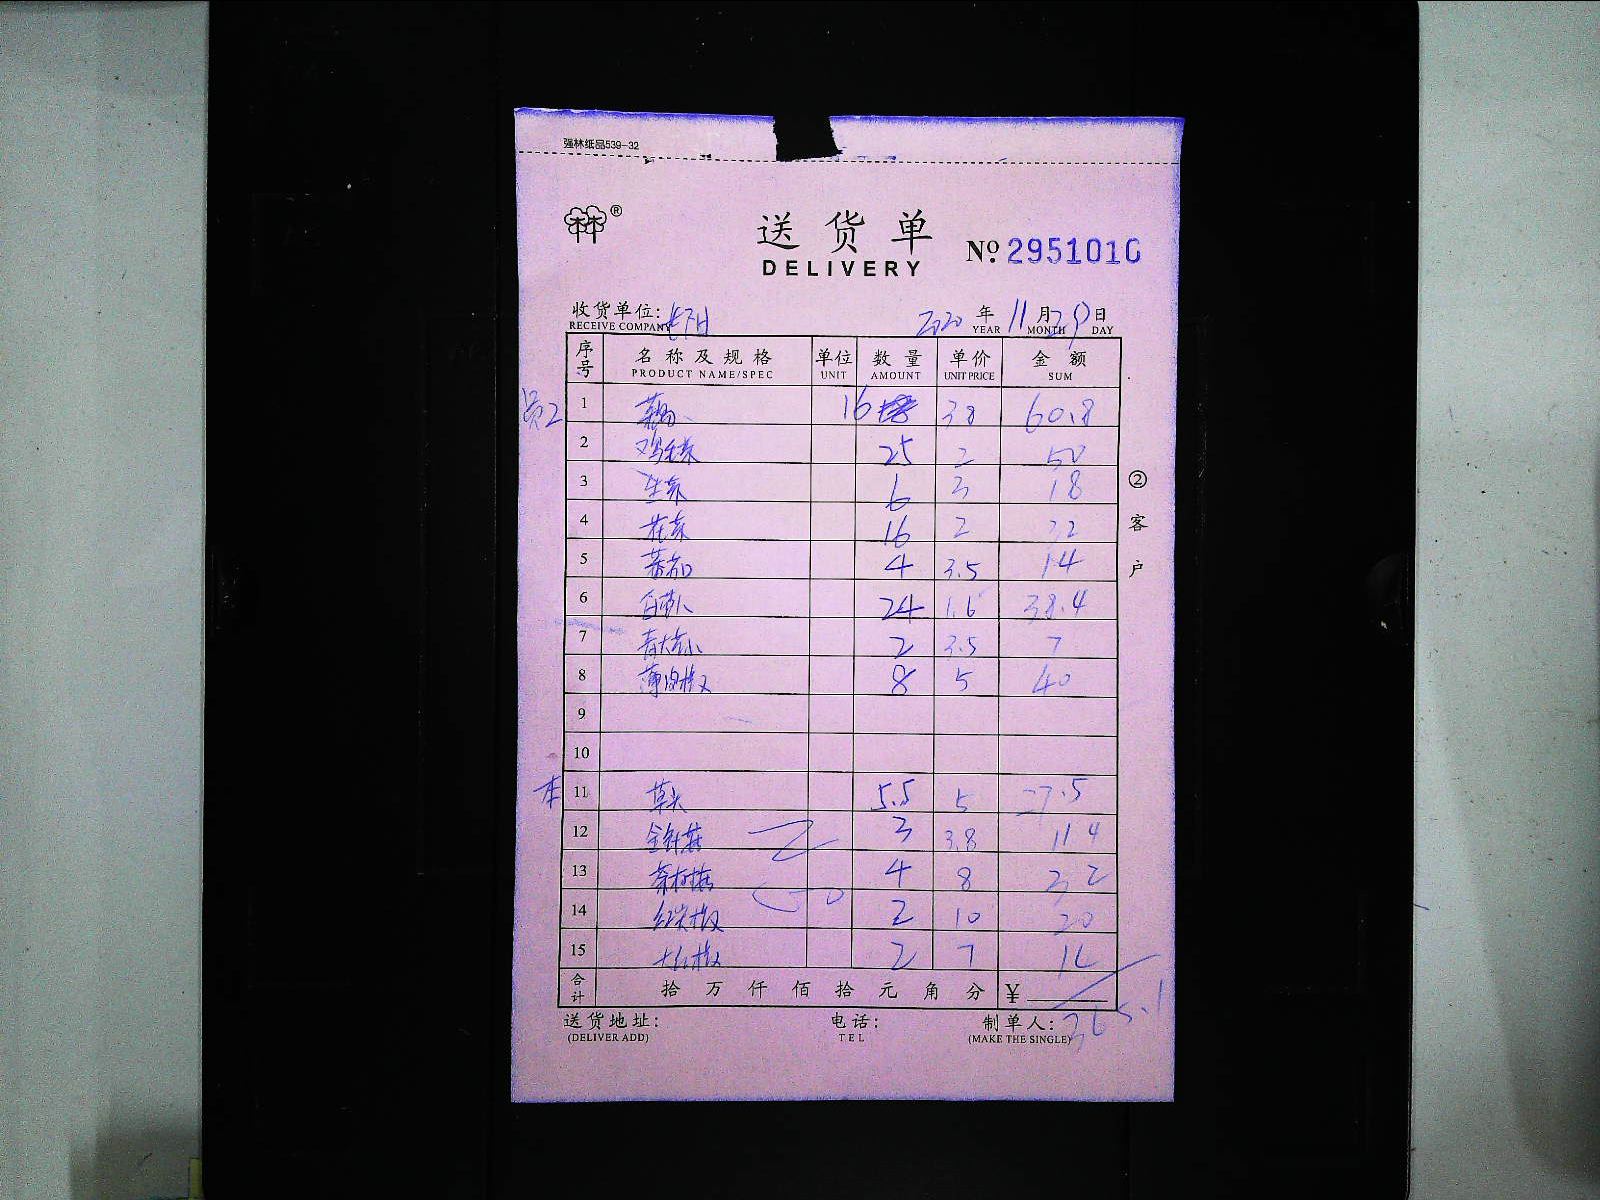 强林纸品539-32
林®
送货单
DELIVERY
№ 2951010
收货单位:
RECEIVE COMPANY
2020 年 11 月 29 日
YEAR MONTH DAY
序号 名称及规格 单位 数量 单价 金额
PRODUCT NAME/SPEC UNIT AMOUNT UNIT PRICE SUM
员工 1 16 3.8 60.8
2 鸡毛菜 25 2 50
3 生菜 6 3 18
4 花菜 16 2 32
5 蕃茄 4 3.5 14
6 24 1.6 38.4
7 2 3.5 7
8 薄肉椒 8 5 40
9
10
本 11 草头 5.5 5 27.5
12 金针菇 3 3.8 11.4
13 茶树菇 4 8 32
14 红尖椒 2 10 20
15 大红椒 2 7 14
合计 拾万仟佰拾元角分 ¥ 365.1
②客户
送货地址: 电话: 制单人:
(DELIVER ADD) TEL (MAKE THE SINGLE)